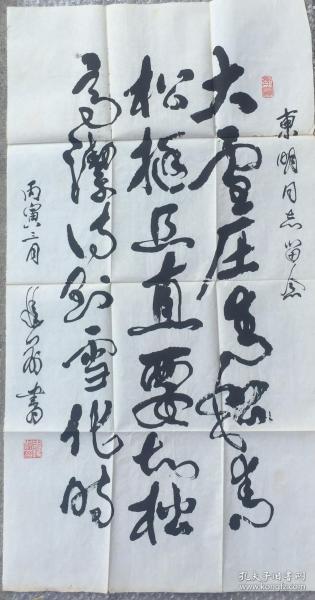 東明同志留念
大雪压青松青
松挺且直要知松
高潔待到雪化時
丙寅三月
書
孔夫子旧书网